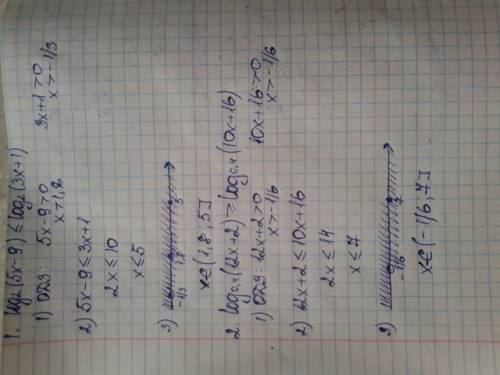 1. log₂(5x-9) ≤ log₂(3x+1)
1) ОДЗ: 5x-9>0 3x+1>0
x>1,8 x>-1/3
2) 5x-9 ≤ 3x+1
2x ≤ 10
x ≤ 5
3)
-1/3 1,8 5
x∈(1,8; 5]
2. log₀,₄(12x+2) ≥ log₀,₄(10x+16)
1) ОДЗ: 12x+2>0 10x+16>0
x>-1/6 x>-1/6
2) 12x+2 ≤ 10x+16
2x ≤ 14
x ≤ 7
3)
-1/6 7
x∈(-1/6; 7]